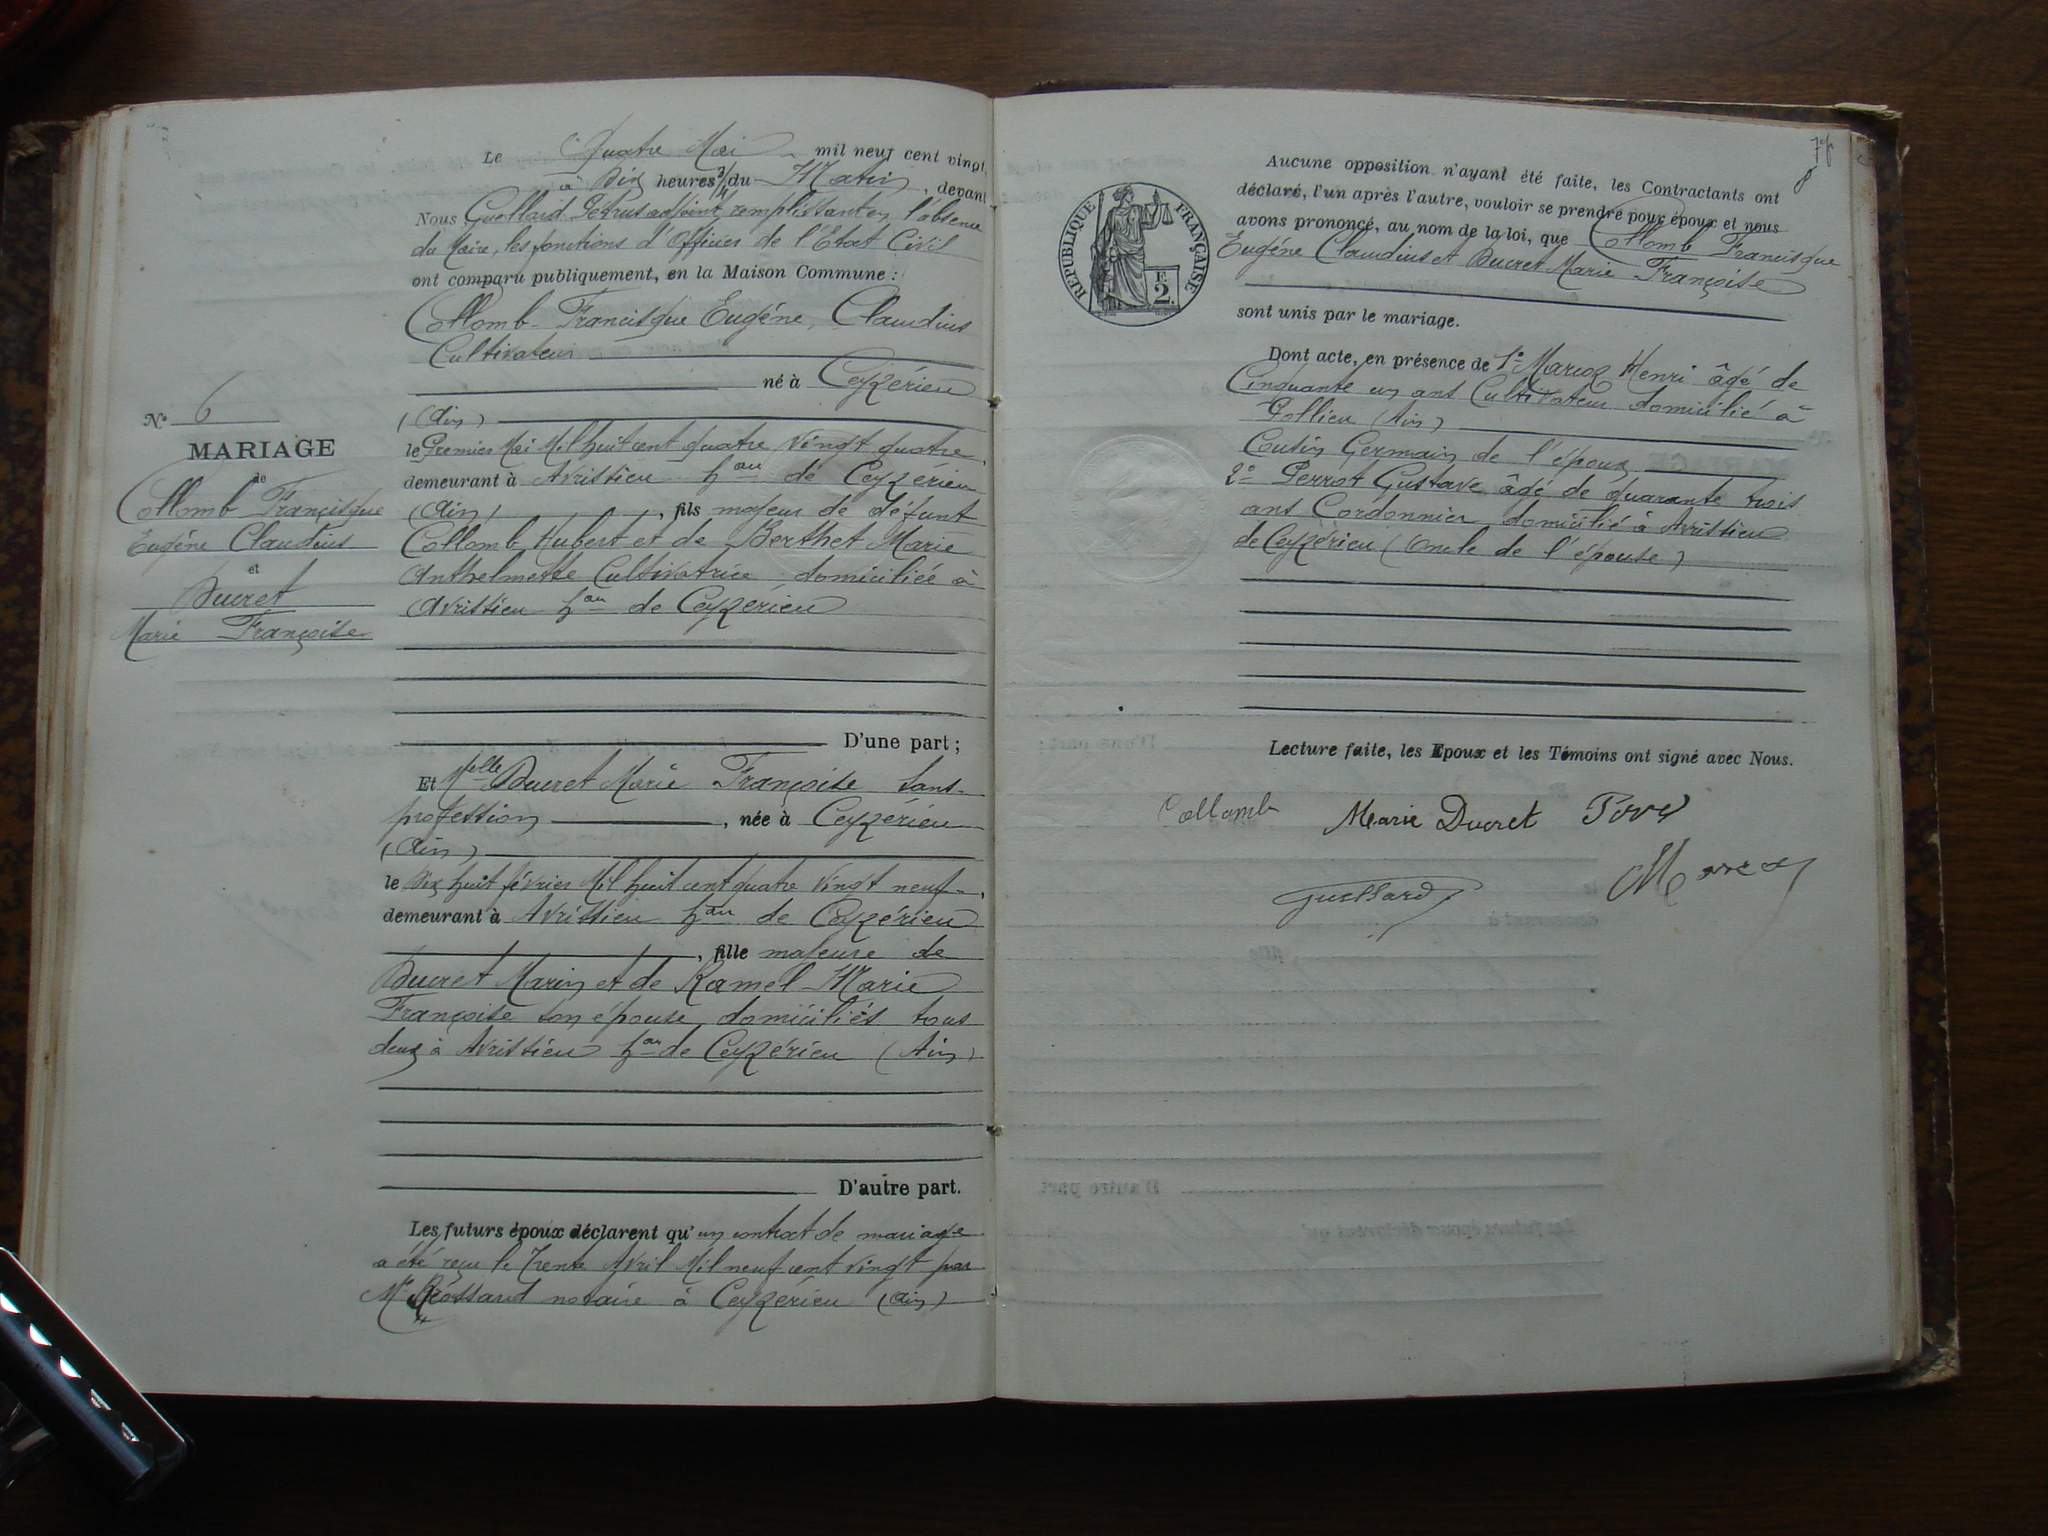 Le Quatre Mai mil neuf cent vingt
à Dix heures 3/4 du Matin, devant
Nous Guellard Petrus adjoint, remplissant en l'absence
du Maire, les fonctions d'Officier de l'Etat Civil
ont comparu publiquement, en la Maison Commune :
Collomb Francisque Eugéne, Claudius
Cultivateur
né à Ceyzérieu
(Ain)
le Premier Mai Mil huit cent quatre vingt quatre,
demeurant à Avrissieu h.au de Ceyzérieu
(Ain), fils majeur de défunt
Collomb Hubert et de Berthet Marie
Anthelmette Cultivatrice domiciliée à
Avrissieu h.au de Ceyzérieu
D'une part ;
N° 6
MARIAGE
de
Collomb Francisque
Eugéne Claudius
et
Ducret
Marie Françoise
Et Melle Ducret Marie Françoise sans
profession, née à Ceyzérieu
(Ain)
le Dix huit février Mil huit cent quatre vingt neuf,
demeurant à Avrissieu h.au de Ceyzérieu
, fille majeure de
Ducret Marin et de Ramel Marie
Françoise son épouse domiciliés tous
deux à Avrissieu h.au de Ceyzérieu (Ain)
D'autre part.
Les futurs époux déclarent qu'un contrat de mariage
a été reçu le Trente Avril Mil neuf cent vingt par
Me notaire à Ceyzérieu (Ain)
REPUBLIQUE FRANÇAISE
F.
2.
Aucune opposition n'ayant été faite, les Contractants ont
déclaré, l'un après l'autre, vouloir se prendre pour époux et nous
avons prononcé, au nom de la loi, que Collomb Francisque
Eugéne Claudius et Ducret Marie Françoise
sont unis par le mariage.
Dont acte, en présence de 1° Marcoz Henri âgé de
Cinquante un ans Cultivateur domicilié à
Pollieu (Ain)
Cousin Germain de l'époux
2° Perrot Gustave âgé de quarante trois
ans Cordonnier domicilié à Avrissieu
de Ceyzérieu (oncle de l'épouse)
Lecture faite, les Epoux et les Témoins ont signé avec Nous.
Collomb Marie Ducret
Guellard Marcoz